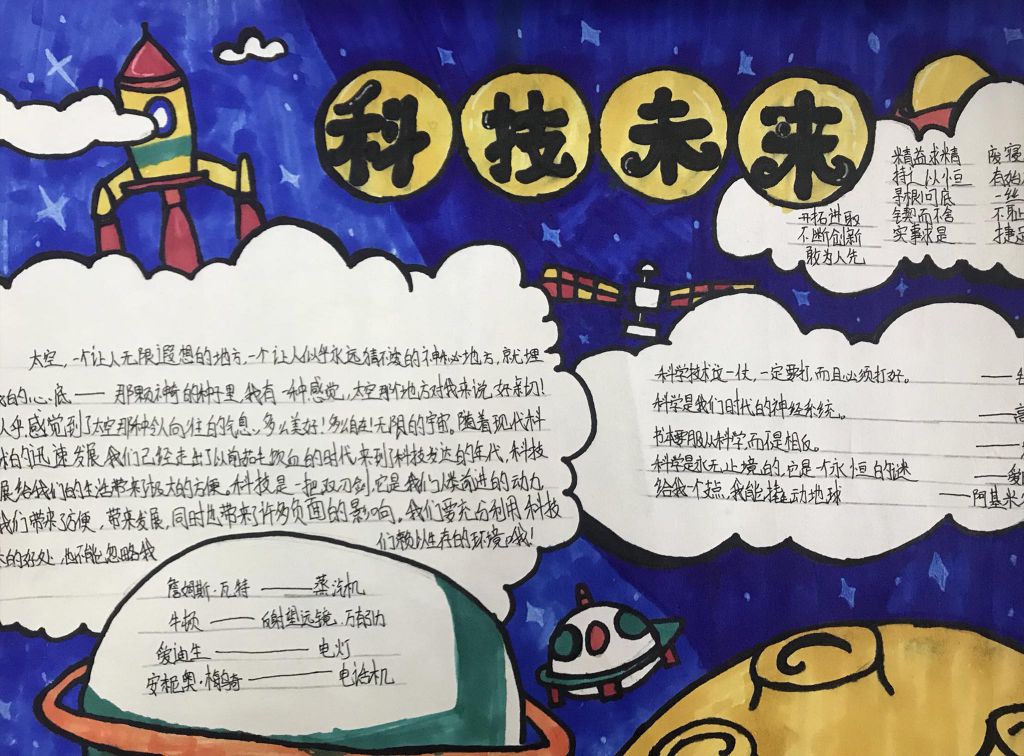 科技未来
精益求精 废寝
持之以恒 有始
寻根问底 一丝
锲而不舍 不耻
实事求是 捷足
开拓进取
不断创新
敢为人先
太空,一个让人无限遐想的地方,一个让人似乎永远猜不透的神秘地方,就埋
我的心底——那颗神奇的种子里,我有一种感觉,太空那个地方对我来说,好亲切!
似乎感觉到了太空那种令人向往的气息。多么美好!多么自在!无限的宇宙,随着现代科
的迅速发展,我们已经走出了以前茹毛饮血的时代,来到科技发达的年代,科技
展给我们的生活带来了极大的方便。科技是一把双刃剑,它是我们人类前进的动力
我们带来了方便,带来发展,同时也带来了许多负面的影响。我们要充分利用科技
来的好处,也不能忽略我们赖以生存的环境哦!
科学技术这一仗,一定要打,而且必须打好。——
科学是我们时代的神经系统。——高
书本要服从科学,而不是相反。——
科学是永无止境的,它是个永恒的谜——爱
给我个支点,我能撬动地球——阿基米
詹姆斯·瓦特——蒸汽机
牛顿——反射望远镜,万有引力
爱迪生——电灯
安东尼奥·梅乌奇——电话机